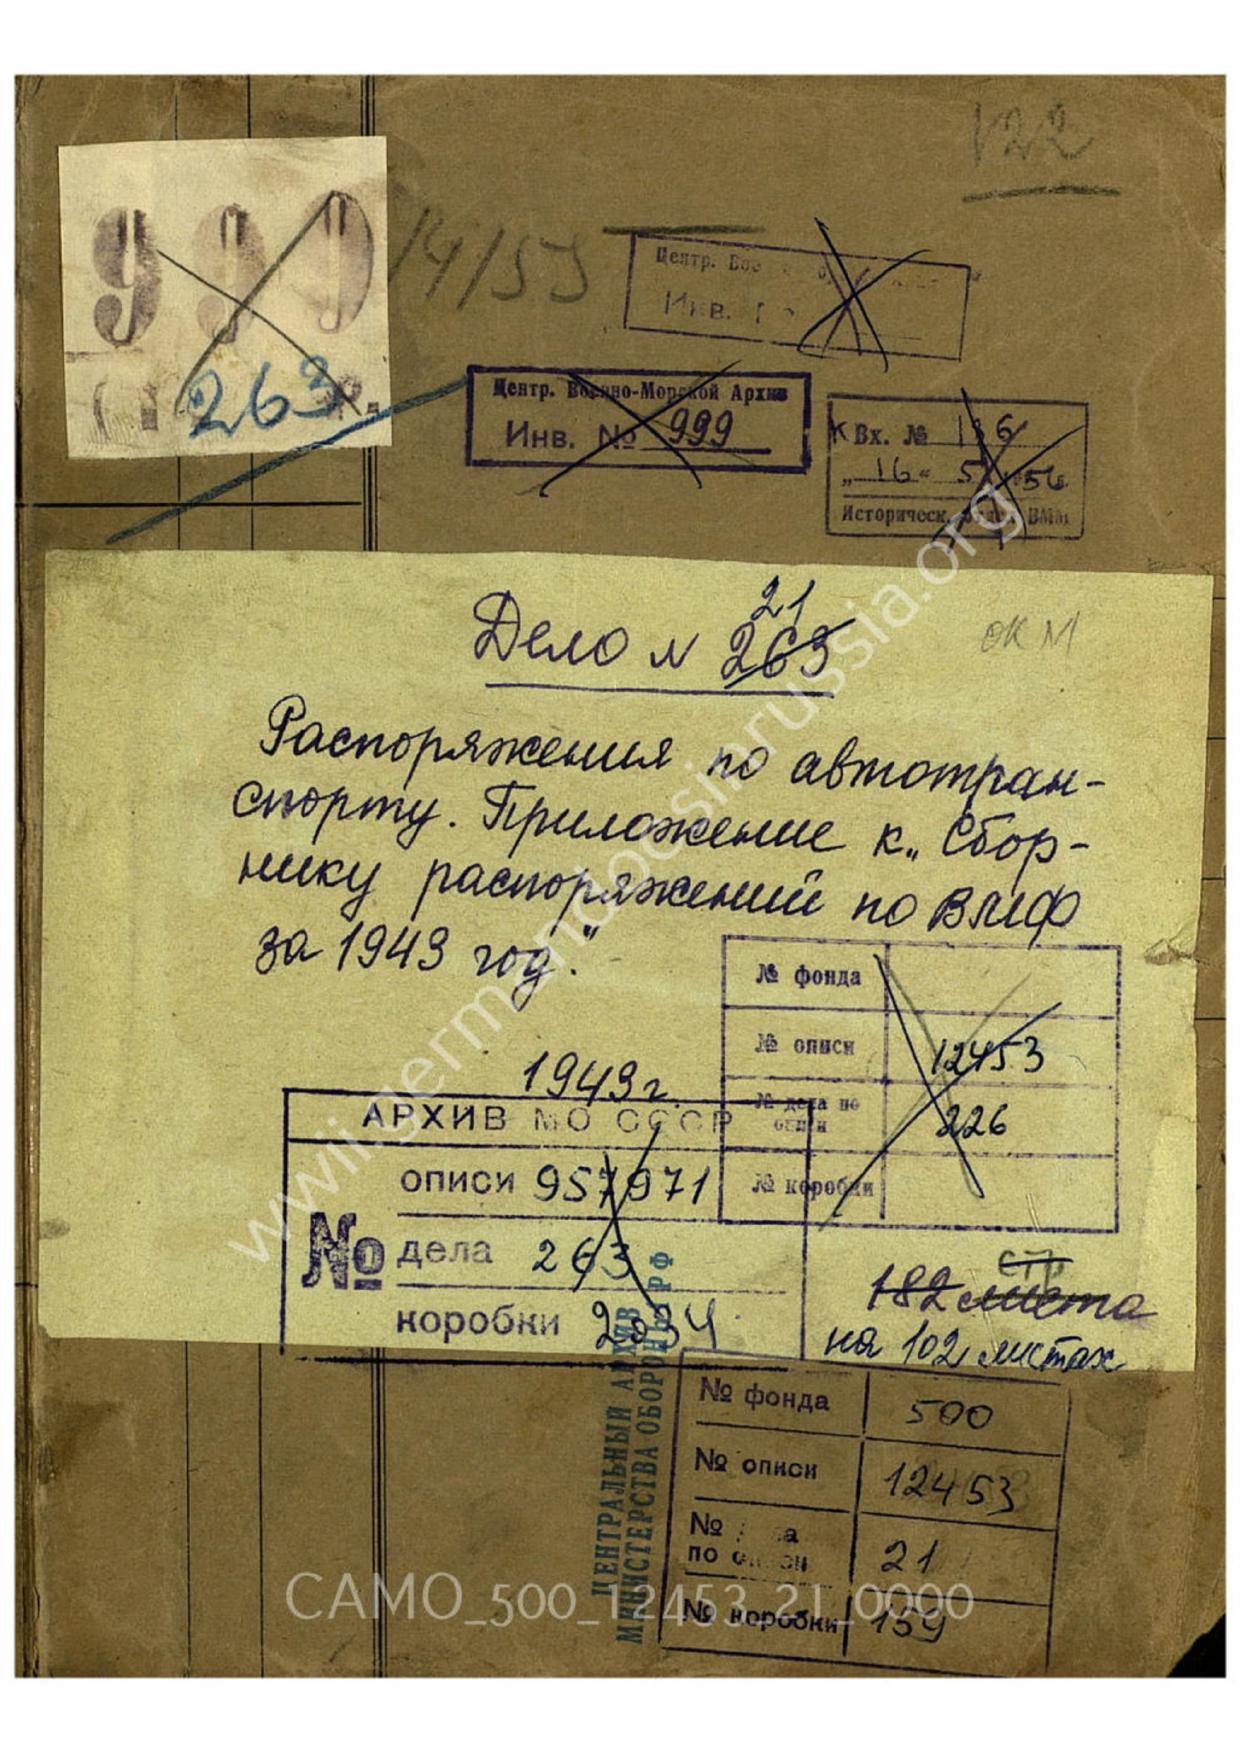 122
999
263
14/53
Центр.
Инв.
Центр. Военно-Морской Архив
Инв. № 999
К Вх. № 136
„16" 5 56
Историческ. отдел ВММ
21
Дело N 263
ОКМ
Распоряжения по автотран-
спорту. Приложение к „Сбор-
нику распоряжений по ВМФ
за 1943 год."
1943 г.
№ фонда
№ описи 12453
№ дела по описи 226
№ коробки
АРХИВ МО СССР
№
описи 957971
дела 263
коробки 2034
стр.
182 листа
на 102 листах
ЦЕНТРАЛЬНЫЙ АРХИВ
МИНИСТЕРСТВА ОБОРОНЫ РФ
№ фонда 500
№ описи 12453
№ дела
по описи 21
№ коробки 159
www.germandocsinrussia.org
CAMO_500_12453_21_0000